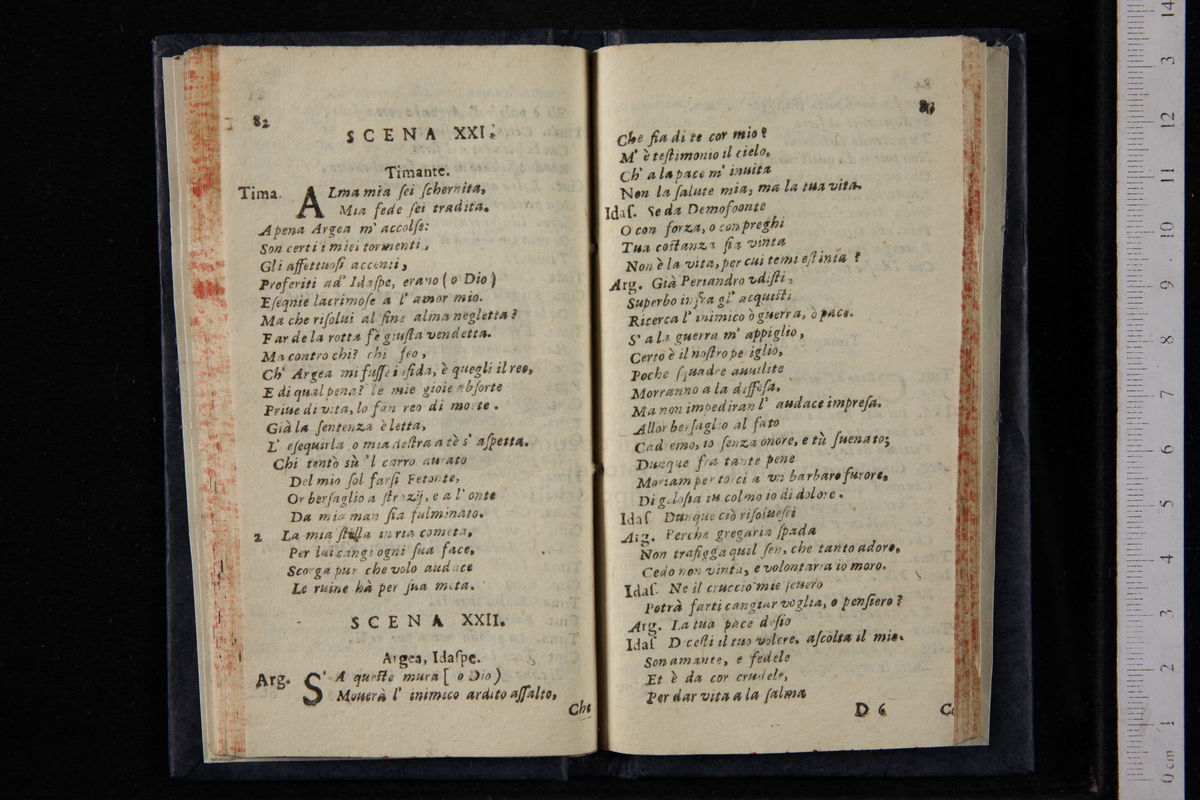 82
SCENA XXI.
Timante.
Tima. ALma mia sei schernita,
Mia fede sei tradita.
Apena Argea m' accolse:
Son certi i miei tormenti,
Gli affettuosi accenti,
Proferiti ad' Idaspe, erano (o Dio)
Esequie lacrimose a l' amor mio.
Ma che risolui al fine alma negletta?
Far de la rotta fè giusta vendetta.
Ma contro chi? chi feo,
Ch' Argea mi fusse infida, è quegli il reo,
E di qual pena? le mie gioie absorte
Priue di vita, lo fan reo di morte.
Già la sentenza è letta,
L' esequirla o mia destra a tè s' aspetta.
Chi tentò sù 'l carro aurato
Del mio sol farsi Fetonte,
Or bersaglio a strazij, e a l' onte
Da mia man sia fulminato.
2 La mia stella in ria cometa,
Per lui cangi ogni sua face,
Scorga pur che volo audace
Le ruine hà per sua meta.
SCENA XXII.
Argea, Idaspe.
Arg. S' A queste mura [ o Dio)
Mouerà l' inimico ardito assalto,
Che
83
Che fia di te cor mio?
M' è testimonio il cielo,
Ch' a la pace m' inuita
Non la salute mia, ma la tua vita.
Idas. Se da Demofoonte
O con forza, o con preghi
Tua costanza fia vinta
Non è la vita, per cui temi estinta?
Arg. Già Periandro vdisti,
Superbo infra gl' acquisti
Ricerca l' inimico ò guerra, ò pace.
S' a la guerra m' appiglio,
Certo è il nostro periglio,
Poche squadre auuilite
Morranno a la diffesa,
Ma non impediran l' audace impresa.
Allor bersaglio al fato
Cadremo, io senza onore, e tù suenato;
Dunque fra tante pene
Moriam per torci a vn barbaro furore,
Di gelosia tu colmo io di dolore.
Idas. Dunque ciò risoluesti
Arg. Perche gregaria spada
Non trafigga quel sen, che tanto adoro,
Cedo non vinta, e volontaria io moro.
Idas. Ne il cruccio mio seuero
Potrà farti cangiar voglia, o pensiero?
Arg. La tua pace desio
Idas. Dicesti il tuo volere, ascolta il mio.
Son amante, e fedele
Et è da cor crudele,
Per dar vita a la salma
D 6